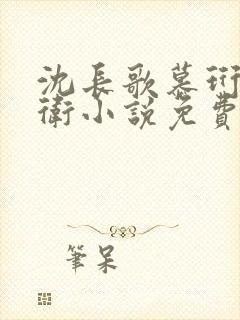 沈長歌慕珩
衛小說免費
筆呆